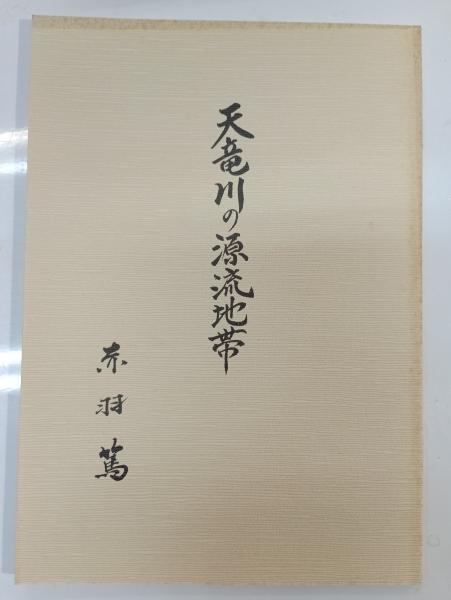 天竜川の源流地帯
赤羽篤